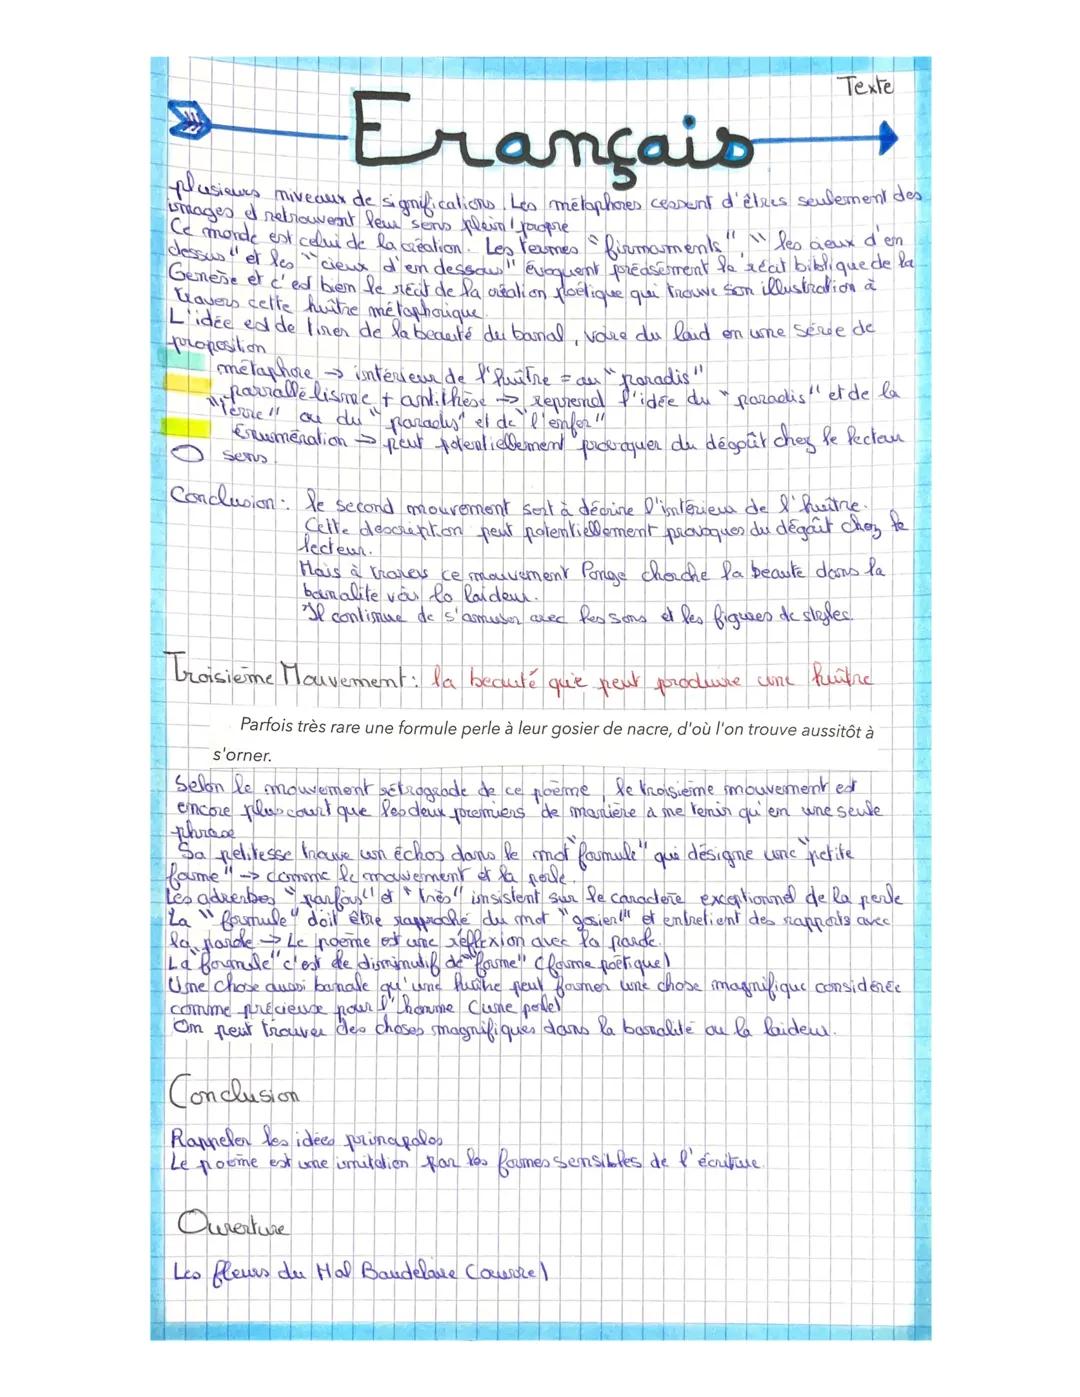 Texte
Français
plusieurs niveaux de significations. Les métaphores cessent d'êtres seulement des
images et retrouvent leur sens plein / propre
Ce monde est celui de la création. Les termes "firmaments" "les cieux d'en
dessus" et les "cieux d'en dessous" évoquent précisément le récit biblique de la
Genèse et c'est bien le récit de la création poétique qui trouve son illustration à
travers cette huître métaphorique.
L'idée est de tirer de la beauté du banal, voire du laid en une série de
proposition
métaphore → intérieur de l'huître = au "paradis"
parrallélisme + antithèse → reprend l'idée du "paradis" et de la
"Terre" ou du "paradis" et de "l'enfer"
Enumération → peut potentiellement provoquer du dégoût chez le lecteur
sens.
Conclusion : le second mouvement sert à décrire l'intérieur de l'huître.
Cette description peut potentiellement provoquer du dégoût chez le
lecteur.
Mais à travers ce mouvement Ponge cherche la beauté dans la
banalité voir la laideur.
Il continue de s'amuser avec les sons et les figures de styles.
Troisième Mouvement : la beauté que peut produire une huître
Parfois très rare une formule perle à leur gosier de nacre, d'où l'on trouve aussitôt à
s'orner.
Selon le mouvement rétrograde de ce poème, le troisième mouvement est
encore plus court que les deux premiers de manière a ne tenir qu'en une seule
phrase
Sa petitesse trouve un échos dans le mot "formule" qui désigne une "petite
forme" → comme le mouvement et la perle.
Les adverbes "parfois" et "très" insistent sur le caractère exceptionnel de la perle
La "formule" doit être rapproché du mot "gosier" et entretient des rapports avec
la parole → Le poème est une réflexion avec la parole.
La "formule" c'est le diminutif de "forme" (forme poétique)
Une chose aussi banale qu'une huître peut former une chose magnifique considérée
comme précieuse pour l'homme (une perle)
On peut trouver des choses magnifiques dans la banalité ou la laideur.
Conclusion
Rappeler les idées principales
Le poème est une imitation par les formes sensibles de l'écriture.
Ouverture
Les fleurs du Mal Baudelaire (œuvre)